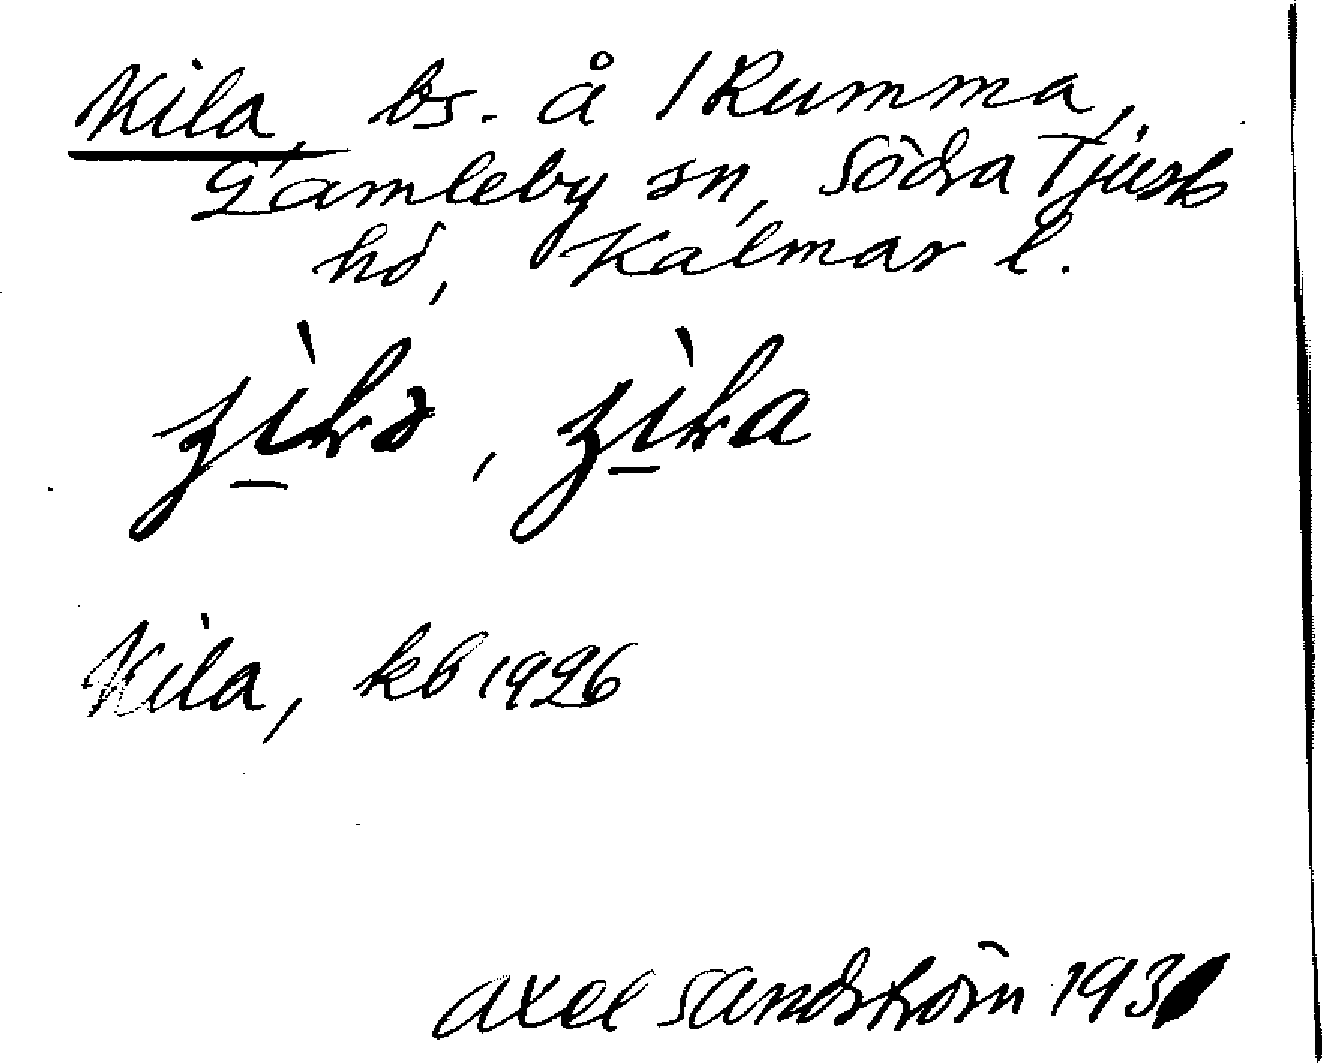 Kila, bs. å 1 Rumma,
Gamleby sn, Södra Tjust
hd, Kalmar l.
Kila, kb 1926
Axel Sandström 1931